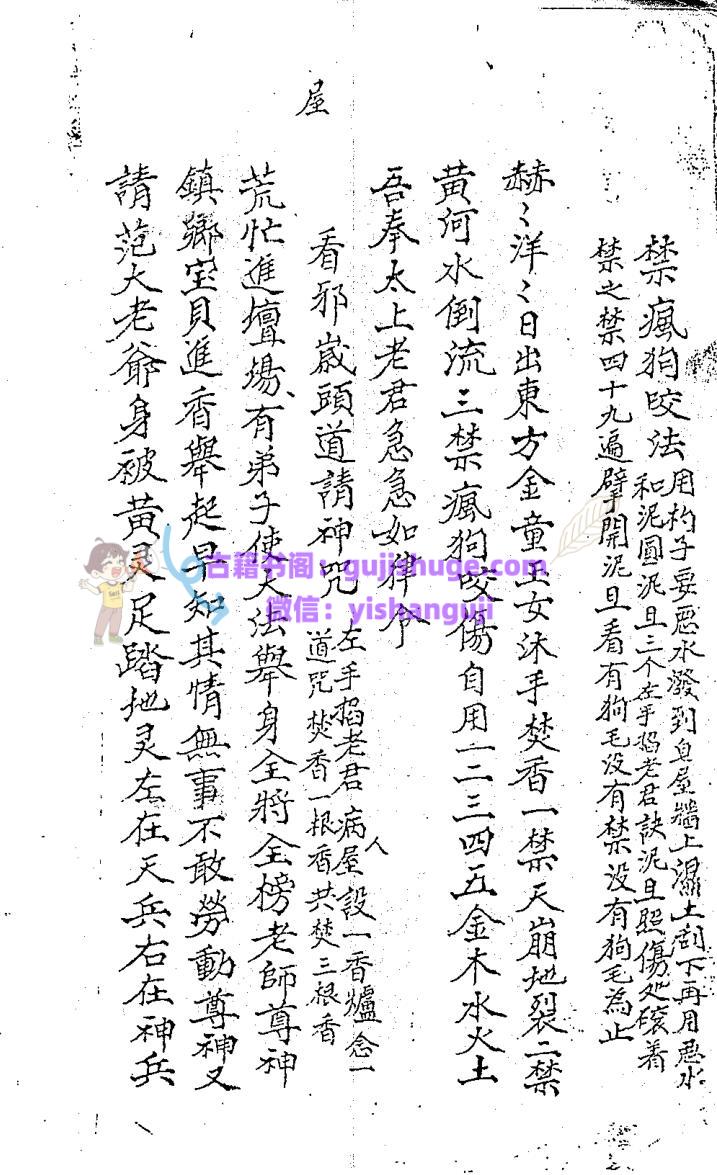 禁瘋狗咬法
用杓子要惡水潑到臭屋牆上濕土刮下再用惡水
和泥圓泥旦三个左手掐老君訣泥旦照傷処磙着
禁之禁四十九遍擘開泥旦看有狗毛没有禁没有狗毛為止
赫〻洋〻日出東方金童玉女沐手焚香一禁天崩地裂二禁
黄河水倒流三禁瘋狗咬傷自用一二三四五金木水火土
吾奉太上老君急急如律令
看邪崴頭道請神咒
左手掐老君病人屋設一香爐念一
道咒焚香一根香共焚三根香
荒忙進壇場有弟子使大法舉身全將全榜老師尊神
鎮鄉宝貝進香舉起早知其情無事不敢勞動尊神又
請范大老爺身被黄灵足踏地灵左在天兵右在神兵
屋
古籍书阁：gujishuge.com
微信：yishanguji